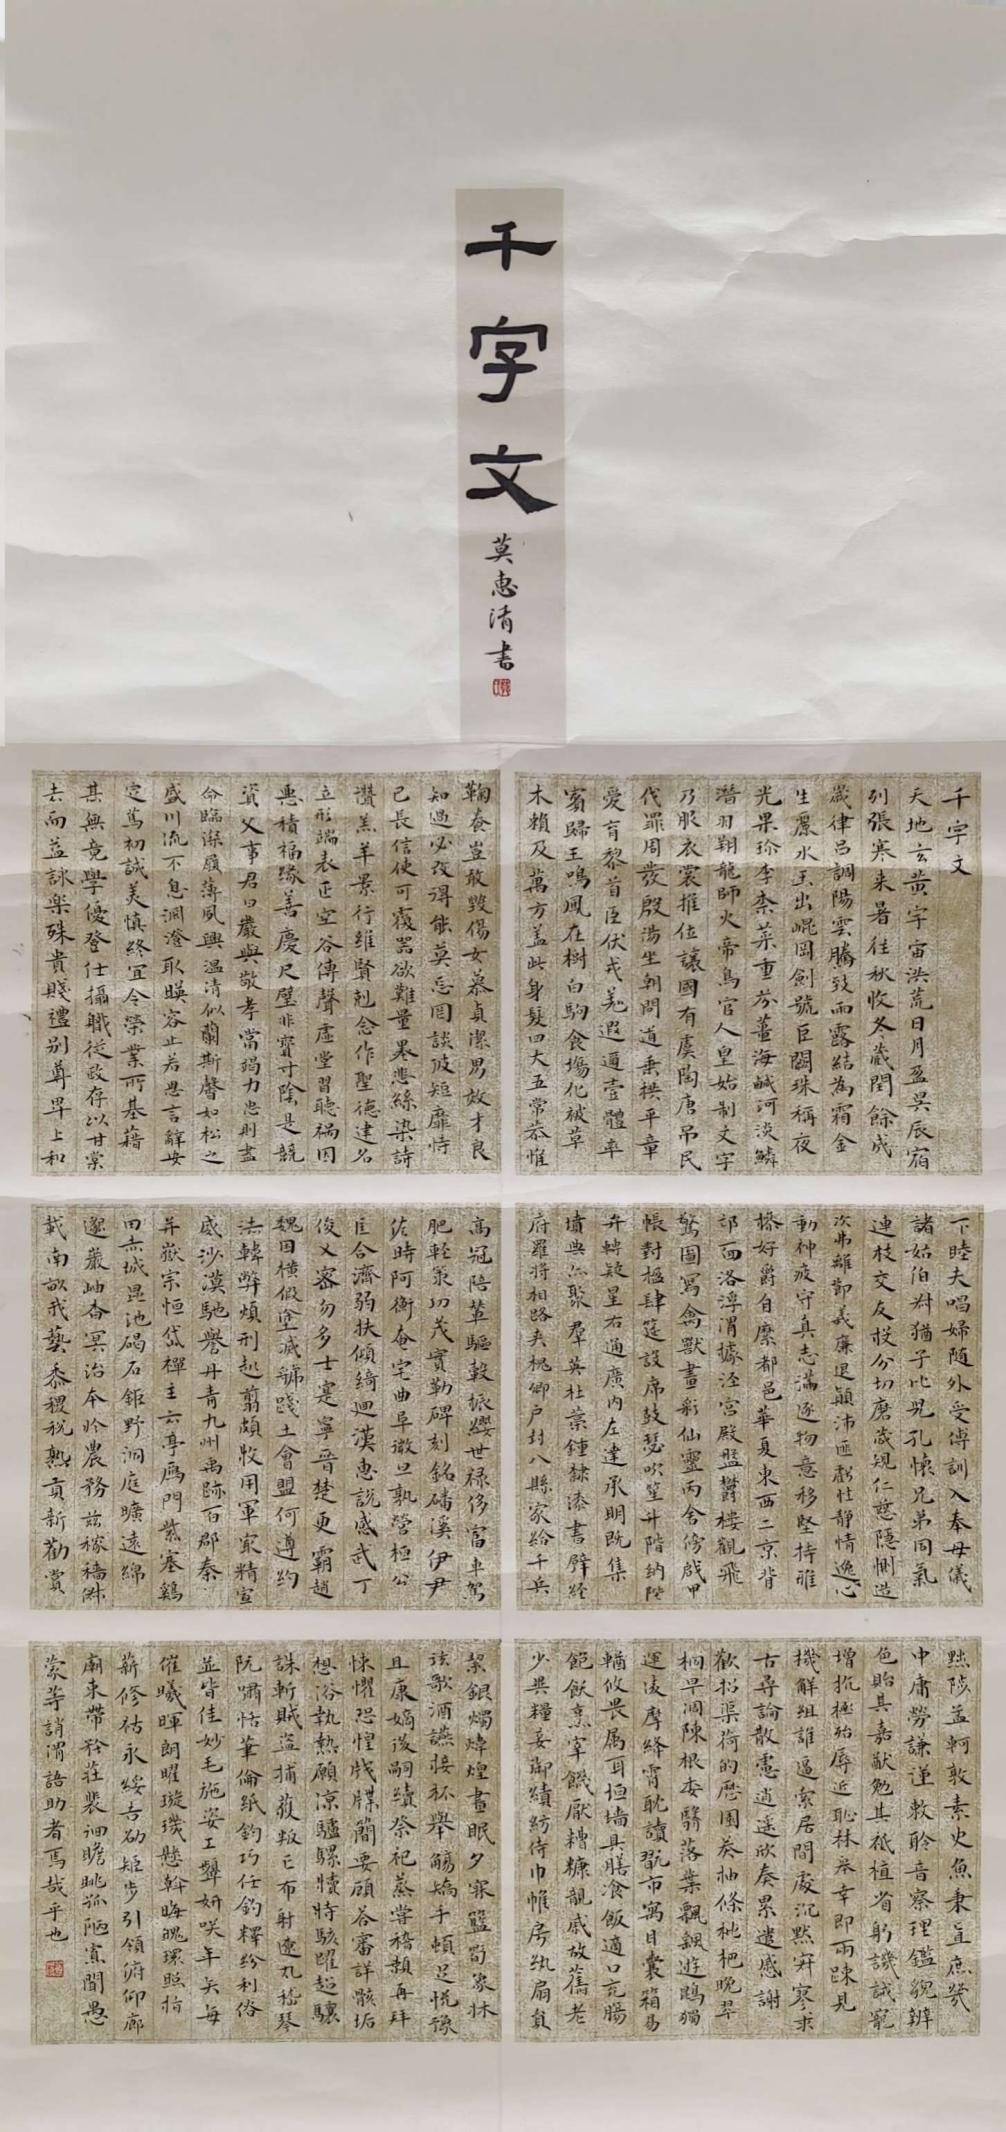 千字文
莫惠清書
千字文
天地玄黃宇宙洪荒日月盈昃辰宿
列張寒来暑往秋收冬蔵閏餘成
歲律呂調陽雲騰致雨露結為霜金
生麗水玉出崐岡劍號巨闕珠稱夜
光果珍李柰菜重芥薑海鹹河淡鱗
潛羽翔龍師火帝鳥官人皇始制文字
乃服衣裳推位讓國有虞陶唐吊民
伐罪周發殷湯坐朝問道垂拱平章
愛育黎首臣伏戎羌遐邇壹體率
賓歸王鳴鳳在樹白駒食場化被草
木賴及萬方盖此身髮四大五常恭惟
鞠養豈敢毀傷女慕貞潔男效才良
知過必改得能莫忘罔談彼短靡恃
己長信使可覆器欲難量墨悲絲染詩
讚羔羊景行維賢剋念作聖德建名
立形端表正空谷傳聲虛堂習聽禍因
惡積福緣善慶尺璧非寶寸陰是競
資父事君曰嚴與敬孝當竭力忠則盡
命臨深履薄夙興溫凊似蘭斯馨如松之
盛川流不息淵澄取暎容止若思言辭安
定篤初誠美慎終宜令榮業所基藉
甚無竟學優登仕攝職從政存以甘棠
去而益詠樂殊貴賤禮別尊卑上和
下睦夫唱婦随外受傅訓入奉母儀
諸姑伯叔猶子比兒孔懷兄弟同氣
連枝交友投分切磨箴規仁慈隱惻造
次弗離節義廉退顛沛匪虧性靜情逸心
動神疲守真志滿逐物意移堅持雅
操好爵自縻都邑華夏東西二京背
邙面洛浮渭據涇宮殿盤鬱樓觀飛
驚圖寫禽獸畫彩仙靈丙舍傍啟甲
帳對楹肆筵設席鼓瑟吹笙升階納陛
弁轉疑星右通廣內左達承明既集
墳典亦聚羣英杜稾鍾隸漆書壁經
府羅將相路夾槐卿戶封八縣家給千兵
高冠陪輦驅轂振纓世祿侈富車駕
肥輕策功茂實勒碑刻銘磻溪伊尹
佐時阿衡奄宅曲阜微旦孰營桓公
匡合濟弱扶傾綺迴漢惠說感武丁
俊乂密勿多士寔寧晉楚更霸趙
魏困橫假塗滅虢踐土會盟何遵約
法韓弊煩刑起翦頗牧用軍最精宣
威沙漠馳譽丹青九州禹跡百郡秦
并嶽宗恒岱禪主云亭鴈門紫塞鷄
田赤城昆池碣石鉅野洞庭曠遠綿
邈巖岫杳冥治本於農務茲稼穡俶
載南畝我藝黍稷稅熟貢新勸賞
黜陟孟軻敦素史魚秉直庶幾
中庸勞謙謹敕聆音察理鑑貌辨
色貽其嘉猷勉其祗植省躬譏誡寵
增抗極殆辱近恥林皋幸即兩疎見
機解組誰逼索居閒處沉默寂寥求
古尋論散慮逍遙欣奏累遣慼謝
歡招渠荷的歷園莽抽條枇杷晚翠
桐早凋陳根委翳落葉飄颻遊鵾獨
運凌摩絳霄耽讀翫市寓目囊箱易
輶攸畏属耳垣墙具膳飡飯適口充腸
飽飫烹宰饑厭糟糠親戚故舊老
少異糧妾御績紡侍巾帷房紈扇員
絜銀燭煒煌晝眠夕寐籃筍象床
弦歌酒讌接杯舉觴矯手頓足悅豫
且康嫡後嗣續祭祀蒸嘗稽顙再拜
悚懼恐惶牋牒簡要顧答審詳骸垢
想浴執熱願凉驢騾犢特駭躍超驤
誅斬賊盜捕獲叛亡布射遼丸嵇琴
阮嘯恬筆倫紙鈞巧任釣釋紛利俗
並皆佳妙毛施姿工顰妍咲年矢每
催曦暉朗曜璇璣懸斡晦魄環照指
薪修祜永綏吉劭矩步引領俯仰廊
廟束帶矜莊裴徊瞻眺孤陋寡聞愚
蒙等誚謂語助者焉哉乎也